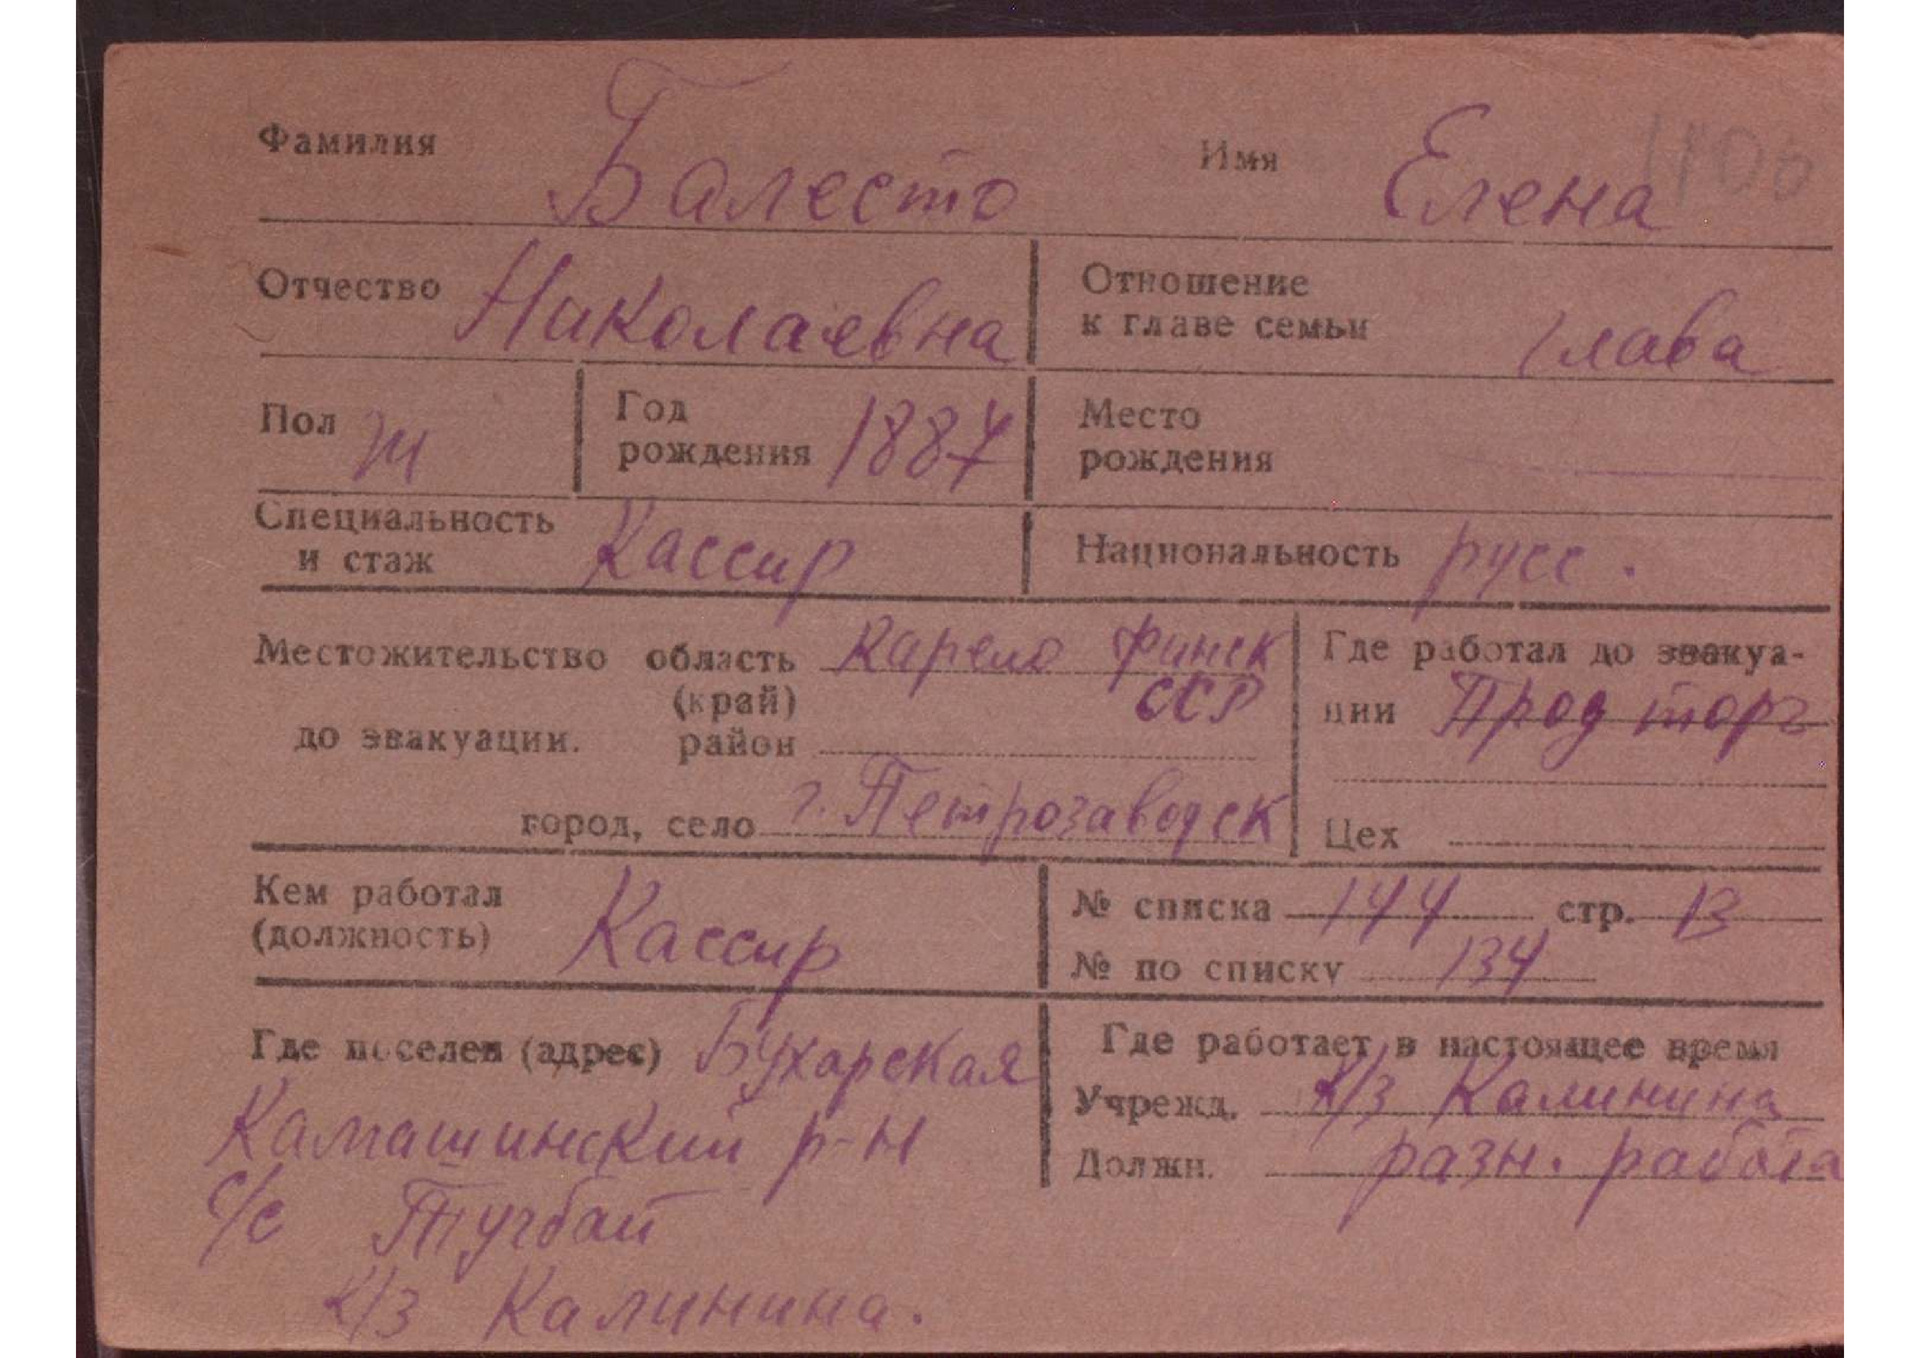 Фамилия Балесто Имя Елена
Отчество Николаевна Отношение
к главе семьи глава
Пол ж Год
рождения 1887 Место
рождения
Специальность
и стаж Кассир Национальность русс.
Местожительство область Карело Финск
(край) ССР
до эвакуации. район
город, село г. Петрозаводск
Где работал до эвакуа-
ции Прод торг
Цех
Кем работал
(должность) Кассир
№ списка 144 стр. 13
№ по списку 134
Где поселен (адрес) Бухарская
Камашинский р-н
с/с Тугбай
к/з Калинина.
Где работает в настоящее время
Учрежд. к/з Калинина
Должн. разн. работа